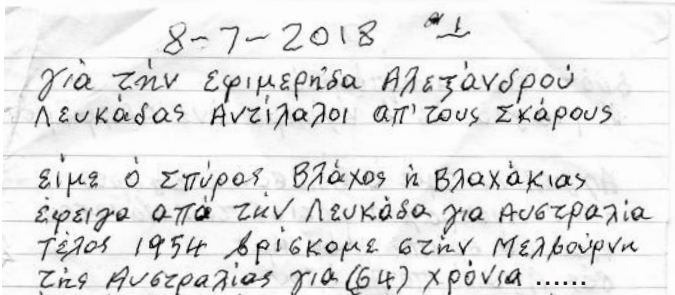 8-7-2018 α 1
γιὰ τὴν εφιμερήδα Αλεξάνδρού
Λευκάδας Αντίλαλοι απ' τους Σκάρους
είμε ὁ Σπύρος Βλάχος ἡ Βλαχάκιας
έφειγα από τὴν Λευκάδα για Αυστραλία
Τέλος 1954 βρίσκομε στὴν Μελβούρνη
τὴς Αυστραλίας για (64) χρόνια ......